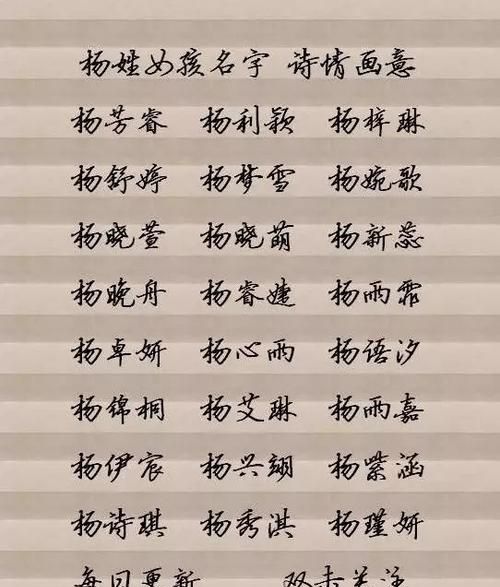 杨姓女孩名字 诗情画意
杨芳睿 杨利颖 杨梓琳
杨舒婷 杨梦雪 杨婉歌
杨晓萱 杨晓萌 杨新蕊
杨晚舟 杨睿婕 杨雨霏
杨卓妍 杨心雨 杨语汐
杨锦桐 杨艾琳 杨雨嘉
杨伊宸 杨兴翊 杨紫涵
杨诗琪 杨秀淇 杨瑾妍
每日更新 双击关注